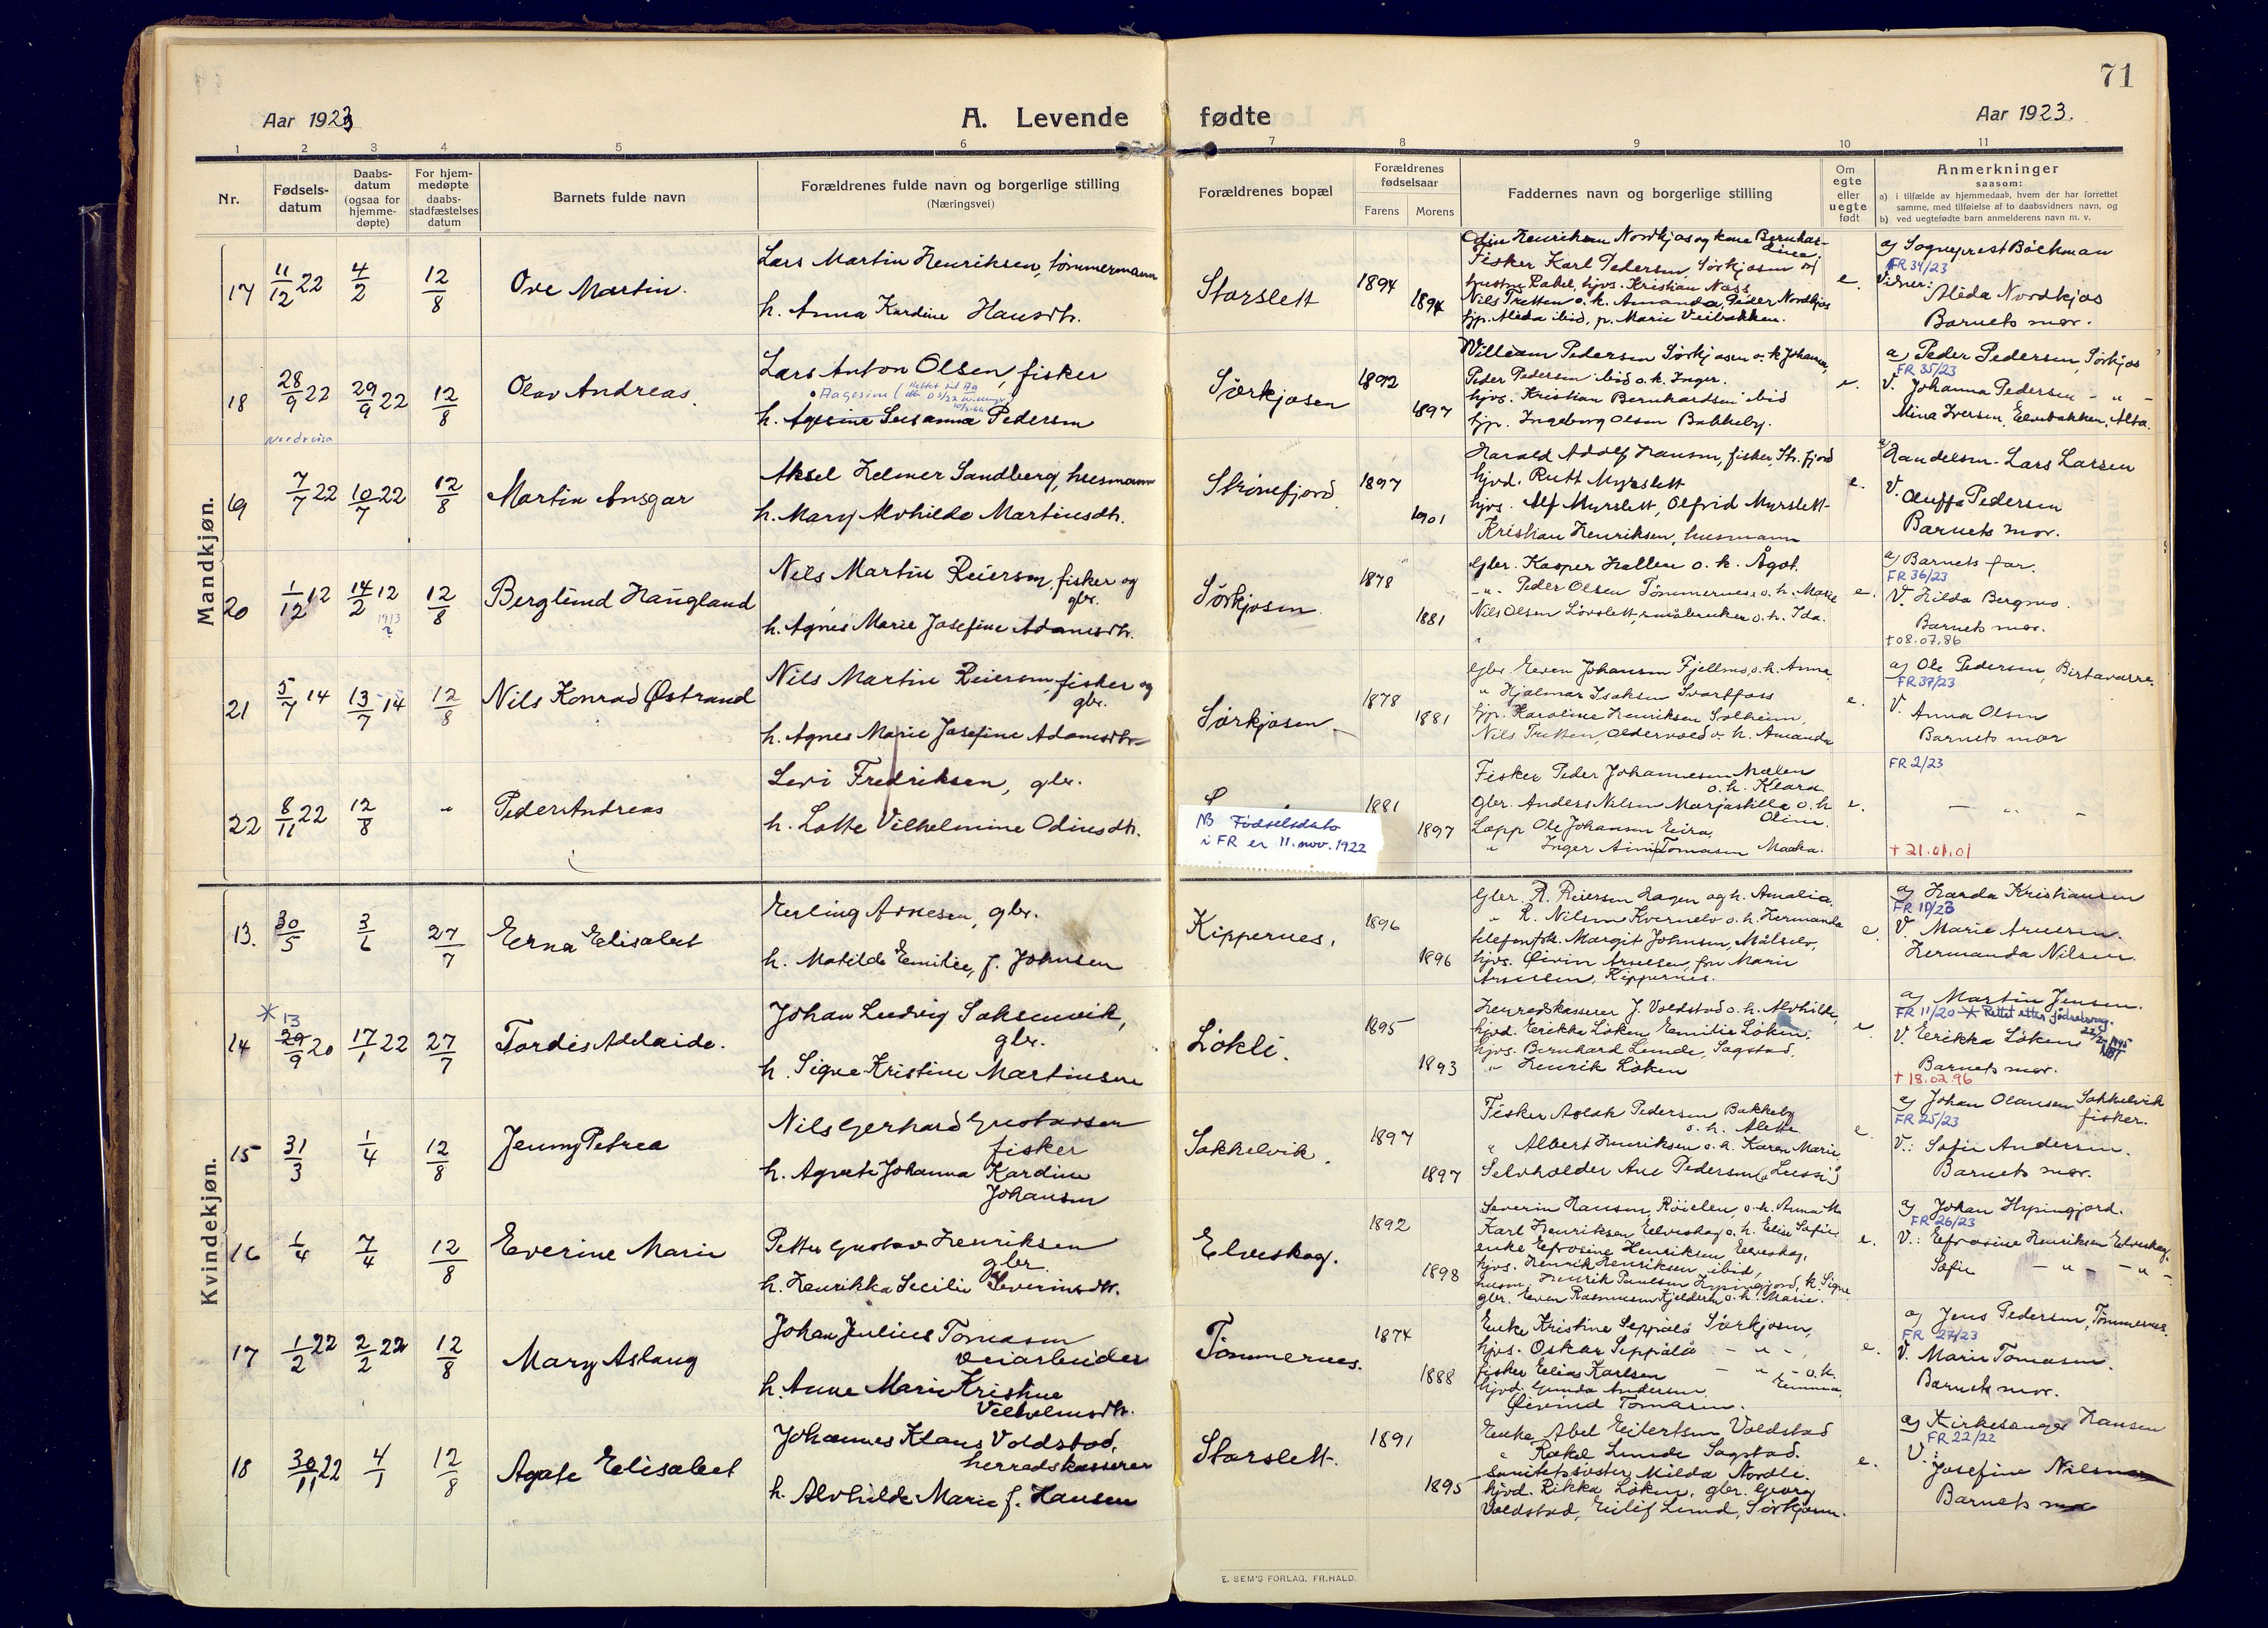 71
Aar 1923
A. Levende fødte
Aar 1923.
1 2 3 4 5 6 7 8 9 10 11
Nr.
Fødsels-
datum
Daabs-
datum
(ogsaa for
hjemme-
døpte)
For hjem-
medøpte
daabs-
stadfæstelses
datum
Barnets fulde navn
Forældrenes fulde navn og borgerlige stilling
(Næringsvei)
Forældrenes bopæl
Forældrenes
fødselsaar
Farens Morens
Faddernes navn og borgerlige stilling
Om
egte
eller
uegte
født
Anmerkninger
saasom:
a) i tilfælde av hjemmedaab, hvem der har forrettet
samme, med tilføielse af to daabsvidners navn, og
b) ved uegtefødte barn anmelderens navn m. v.
Mandkjøn.
17 11/12 22 4/2 12/8 Ove Martin.
Lars Martin Henriksen, tømmermann
h. Anna Kardine Hansdtr.
Storslett 1894 1894
Odin Henriksen Nordkjos og kone Bernhar-
dine.
Fisker Karl Pedersen, Sørkjosen og
hustru Rakel, hjvs. Kristian Næss
Nils Tretten o. h. Amanda, Peder Nordkjos
hjp. Alida ibid, p. Marie Veibakken.
e.
a) Sogneprest Böckman
FR 34/23
Vidner:
Alida Nordkjos
Barnets mor.
18 28/9 22 29/9 22 12/8 Olav Andreas.
Nordreisa
Lars Anton Olsen, fisker
Aagesine
h. Agesine Susanna Pedersen
Sørkjosen 1892 1897
William Pedersen Sørkjosen o. k. Johanna,
Peder Pedersen ibid o. k. Inger.
hjvs. Kristian Bernhardsen ibid
hjp. Ingeborg Olsen Bakkeby.
e.
a) Peder Pedersen, Sørkjos
FR 35/23
V. Johanna Pedersen - " -
Mina Iversen, Elvebakken, Alta.
19 7/7 22 10/7 22 12/8 Martin Ansgar
Aksel Helmer Sandberg, husmann
h. Mary Alvhilde Martinsdtr.
Straumfjord 1897 1901
Harald Adolf Hansen, fisker, Str. fjord
hjvd. Rutt Myrslett
hjvs. Alf Myrslett, Olfrid Myrslett
Kristian Henriksen, husmann
e.
a) Handelsm. Lars Larsen
V. Pedersen
Barnets mor.
20 1/12 12 14/2 12 12/8 Berglund Haugland
1913
?
Nils Martin Reiersen, fisker og
gbr.
h. Agnes Marie Josefine Adamsdtr.
Sørkjosen 1878 1881
Gbr. Kasper Hallen o. k. Ågot.
- " - Peder Olsen Tømmernes o. h. Marie
Nils Olsen Lövslett, småbruker o. h. Ida.
e.
a) Barnets far.
FR 36/23
V. Hilda Bergmo.
Barnets mor.
† 08.07.86
21 5/7 14 13/7 14 12/8 Nils Konrad Østrand
Nils Martin Reiersen, fisker og
gbr.
h. Agnes Marie Josefine Adamsdtr.
Sørkjosen 1878 1881
Gbr. Even Johansen Fjellmo o. h. Anna
" Hjalmar Isaksen Svartfoss
hjp. Karoline Henriksen Solheim,
Nils Tretten, Oldervold o. h. Amanda
e.
a) Ole Pedersen, Birtavarre.
FR 37/23
V. Anna Olsen
Barnets mor
22 8/11 22 12/8 " Peder Andreas
Levi Fredriksen, gbr.
h. Lotte Vilhelmine Odinsdtr.
NB Fødselsdato
i FR er 11. nov. 1922
1881 1897
Fisker Peder Johannesen Mælen
o. h. Klara
Gbr. Anders Nilsen Marjastilla o. h
Oline.
Lapp Ole Johansen Eira,
" Inger Aimi Tomasen Maaka.
e.
FR 2/23
— " —
† 21.01.01
Kvindekjøn.
13. 30/5 3/6 27/7 Erna Elisabet
Erling Arnesen, gbr.
h. Matilde Emilie, f. Johnsen
Kippernes. 1896 1896
Gbr. R. Reiersen Hagen og h. Amalia.
" R. Nilsen Kvernelv o. h. Hermanda
telefonfrk. Margit Johnsen, Målselv,
hjvs. Öivin Arnesen, fru Marie
Arnesen, Kippernes.
e.
a) Harda Kristiansen
FR 10/23
V. Marie Arnesen.
Hermanda Nilsen.
14 * 13 29/9 20 17/1 22 27/7 Tordis Adelaide.
Johan Ludvig Saksenvik,
gbr.
h. Signe Kristine Martinsen
Løkli. 1895 1893
Herredskasserer J. Voldstad o. h. Alvhilde,
hjvd. Erikka Löken, Emilie Löken,
hjvs. Bernhard Lunde, Sagstad,
" Henrik Löken
e
a) Martin Jensen.
FR 11/20 * Rettet etter fødselsreg.
V. Erikka Löken
Barnets mor.
† 18.02.96
15 31/3 1/4 12/8 Jenny Petrea
Nils Gerhard Gustavsen
fisker
h. Agnete Johanna Kardine
Johansen
Sokkelvik. 1897 1897
Fisker Aslak Pedersen Bakkeby
o. h. Alette
" Albert Henriksen o. h. Karen Marie
Selvholder Ane Pedersen (Lussi)
e.
a) Johan Olausen Sokkelvik
fisker.
FR 25/23
V.: Sofie Andersen.
Barnets mor.
16 1/4 7/4 12/8 Everine Marie
Petter Gustav Henriksen
gbr.
h. Henrikka Secilie Severinsdtr.
Elveskog. 1892 1898
Severin Hansen, Röielen, o. h. Anna M.
Karl Henriksen Elveskog o. h. Elen Sofie
enke Efrosine Henriksen Elveskog,
hjvs. Henrik Henriksen ibid,
husm. Henrik Paulsen Hypingjord, k. Signe
gbr. Even Rasmussen Kjelderen o. h. Marie.
e.
a) Johan Hypingjord.
FR 26/23
V.: Efrosine Henriksen Elveskog.
Sofie — " — — " —
17 1/2 22 2/2 22 12/8 Mary Aslaug
Johan Julius Tomasen
veiarbeider
h. Anne Marie Kristine
Vilhelmsdtr.
Tømmernes. 1874 1888
Enke Kristine Seppälä Sørkjosen,
hjvs. Oskar Seppälä - " -,
fisker Elias Karlsen — " — o. h.
Emma,
hjvd. Gunda Andersen,
Öivind Tomasen.
e.
a) Jens Pedersen, Tømmernes.
FR 27/23
V. Marie Tomasen.
Barnets mor.
18 30/11 22 4/1 12/8 Agate Elisabet
Johannes Klaus Voldstad,
herredskasserer
h. Alvhilde Marie f. Hansen
Storslett. 1891 1895
Enke Abel Eilertsen Voldstad
" Rakel Lunde Sagstad.
Sanitetssøster Milda Nordli.
hjvd. Rikka Löken, gbr. Georg
Voldstad, Eilif Lund, Sørkjosen.
e.
a) Kirkesanger Hansen
FR 22/22
V. Josefine Nilsen
Barnets mor
E. SEM'S FORLAG, FR.HALD.